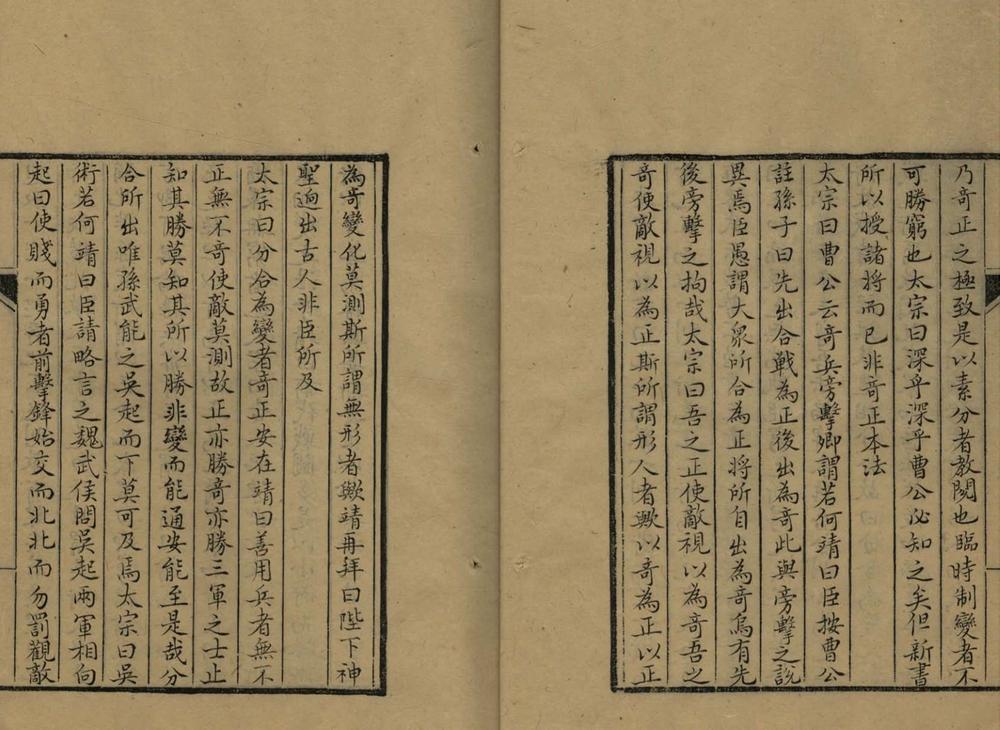 乃奇正之極致是以素分者教閱也臨時制變者不
可勝窮也太宗曰深乎深乎曹公必知之矣但新書
所以授諸將而已非奇正本法
太宗曰曹公云奇兵旁擊卿謂若何靖曰臣按曹公
註孫子曰先出合戰為正後出為奇此與旁擊之說
異焉臣愚謂大衆所合為正將所自出為奇烏有先
後旁擊之拘哉太宗曰吾之正使敵視以為奇吾之
奇使敵視以為正斯所謂形人者歟以奇為正以正
為奇變化莫測斯所謂無形者歟靖再拜曰陛下神
聖迥出古人非臣所及
太宗曰分合為變者奇正安在靖曰善用兵者無不
正無不奇使敵莫測故正亦勝奇亦勝三軍之士止
知其勝莫知其所以勝非變而能通安能至是哉分
合所出唯孫武能之吳起而下莫可及焉太宗曰吳
術若何靖曰臣請略言之魏武侯問吳起兩軍相向
起曰使賤而勇者前擊鋒始交而北北而勿罰觀敵